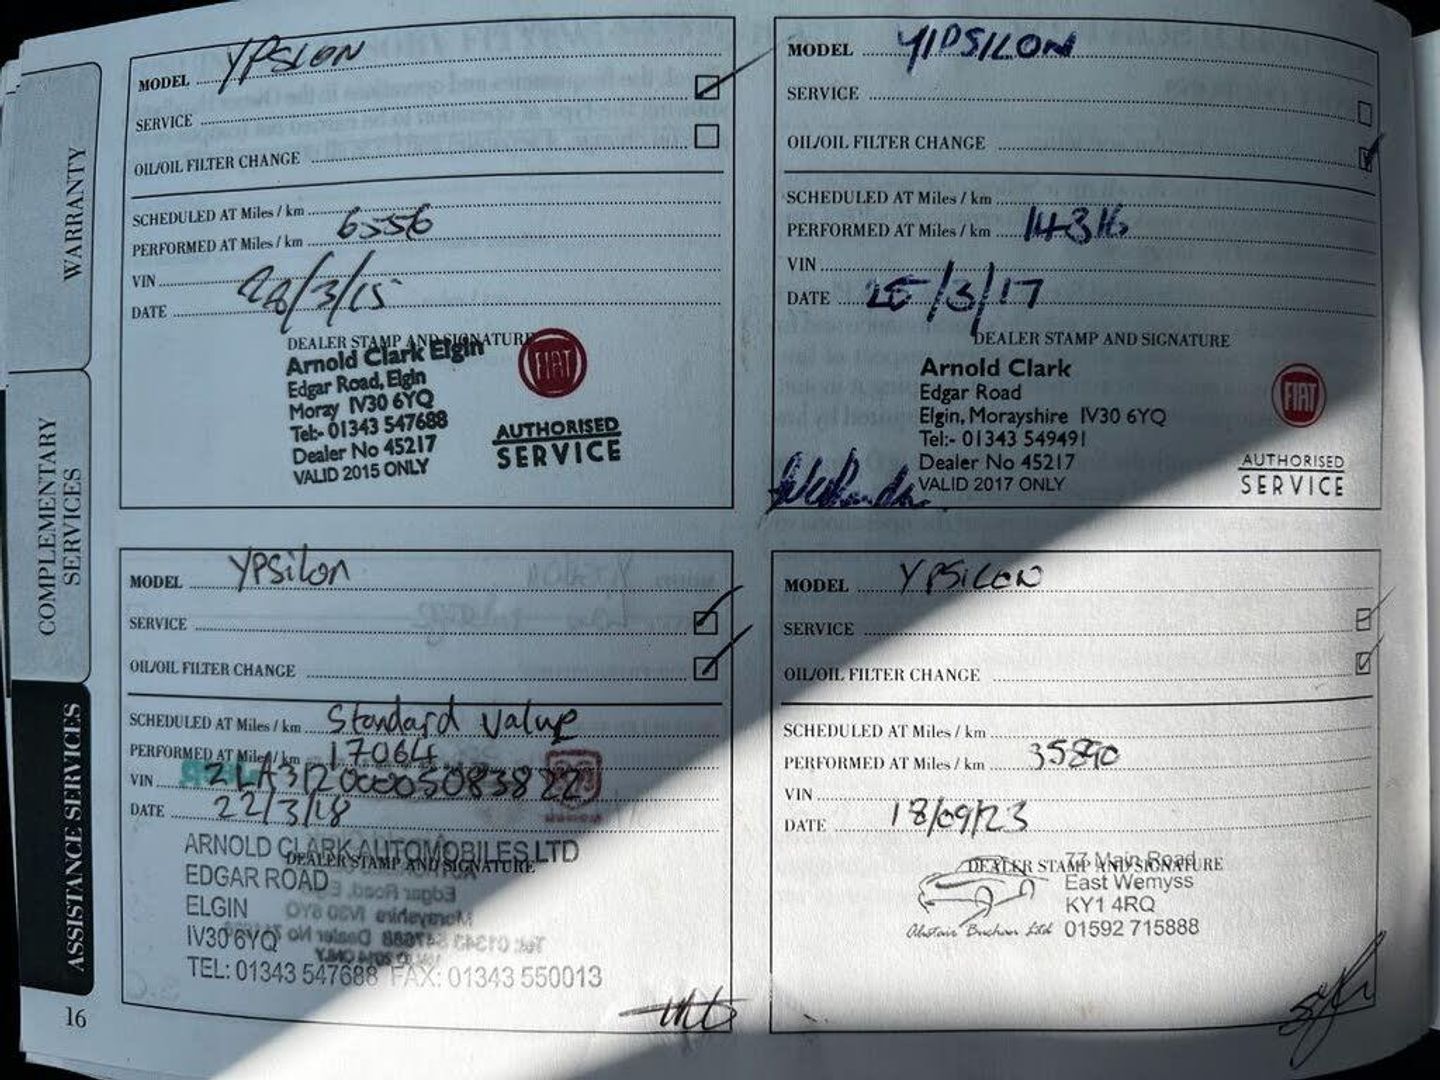 WARRANTY
COMPLEMENTARY
SERVICES
ASSISTANCE SERVICES
16
MODEL YPSILON
SERVICE
OIL/OIL FILTER CHANGE
SCHEDULED AT Miles / km
PERFORMED AT Miles / km 6556
VIN
DATE /3/15
DEALER STAMP AND SIGNATURE
Arnold Clark Elgin
Edgar Road, Elgin
Moray IV30 6YQ
Tel:- 01343 547688
Dealer No 45217
VALID 2015 ONLY
FIAT
AUTHORISED
SERVICE
MODEL YIPSILON
SERVICE
OIL/OIL FILTER CHANGE
SCHEDULED AT Miles / km
PERFORMED AT Miles / km 14316
VIN
DATE 25/3/17
DEALER STAMP AND SIGNATURE
Arnold Clark
Edgar Road
Elgin, Morayshire IV30 6YQ
Tel:- 01343 549491
Dealer No 45217
VALID 2017 ONLY
FIAT
AUTHORISED
SERVICE
MODEL YPSilon
SERVICE
OIL/OIL FILTER CHANGE
SCHEDULED AT Miles / km Standard Value
PERFORMED AT Miles / km 17064
VIN ZLA31200005083822
DATE 22/3/18
DEALER STAMP AND SIGNATURE
ARNOLD CLARK AUTOMOBILES LTD
EDGAR ROAD
ELGIN
IV30 6YQ
TEL: 01343 547688 FAX: 01343 550013
MODEL YPSILON
SERVICE
OIL/OIL FILTER CHANGE
SCHEDULED AT Miles / km
PERFORMED AT Miles / km 35890
VIN
DATE 18/09/23
DEALER STAMP AND SIGNATURE
77 Main Road
East Wemyss
KY1 4RQ
Alistair Buchan Ltd 01592 715888